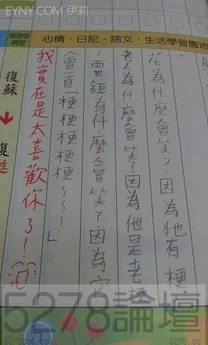 EYNY.COM 伊莉
心情、日記、語文、生活學習園地
花為什麼會笑？因為牠有梗
老人為什麼會笑？因為他是老梗
為什麼會笑？因為它
會一直「梗梗梗梗～～～」
我實在是太喜歡你了！
復蘇
↓
復甦
5278論壇
5278.cc